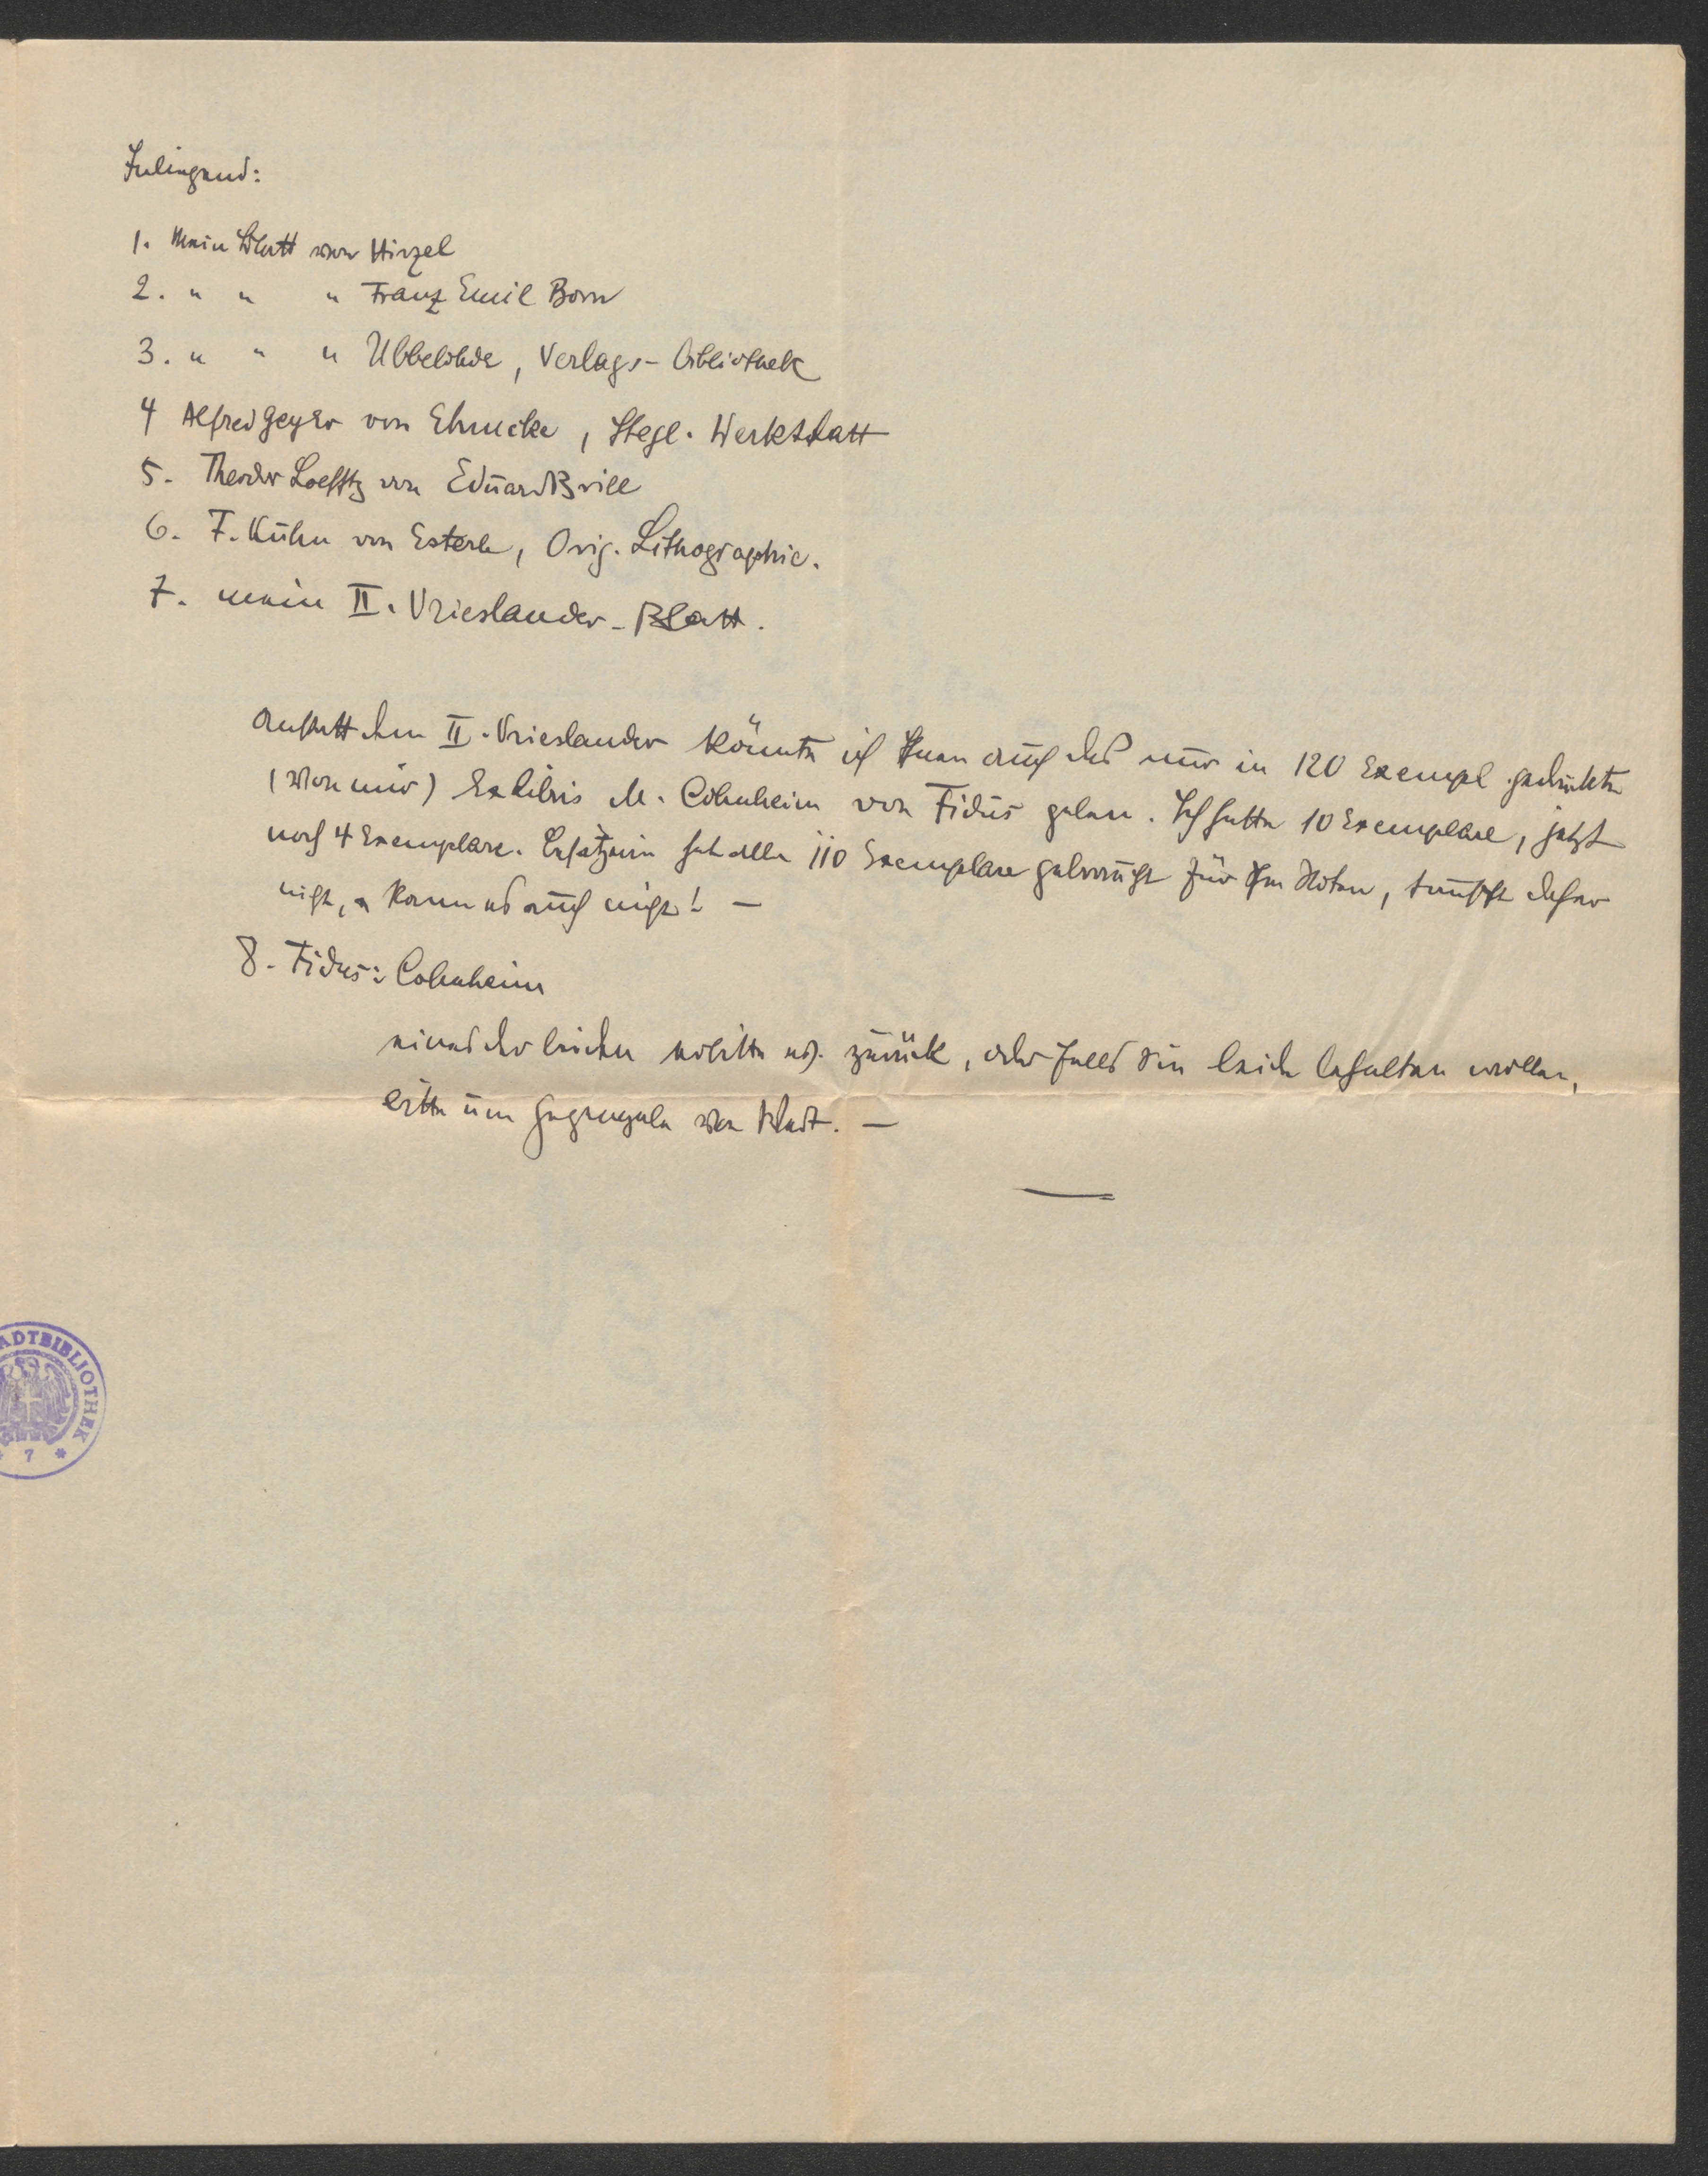 Inliegend:
1. Mein Blatt von Hirzel
2. " " " Franz Emil Born
3. " " " Ubbelohde, Verlags-Bibliothek
4 Alfred Geyer von Ehmcke, Stegl. Werkstatt
5. Theodor Loefftz von Eduard Brill
6. F. Kühn von Esterle, Orig. Lithographie.
7. mein II. Vrieslander-Blatt.
Anstatt dem II. Vrieslander könnte ich Ihnen auch das nur in 120 Exempl. gedruckte
(von mir) Exlibris M. Cohnheim von Fidus geben. Ich hatte 10 Exemplare, jetzt
noch 4 Exemplare. Besitzerin hat alle 110 Exemplare gebraucht für ihre Noten, tauscht daher
nicht, kann es auch nicht! —
8. Fidus: Cohnheim
eines der beiden erbitte ich zurück, oder falls Sie beide behalten wollen,
bitte um Gegengabe von Blatt. —
ADTBIBLIOTHEK
7